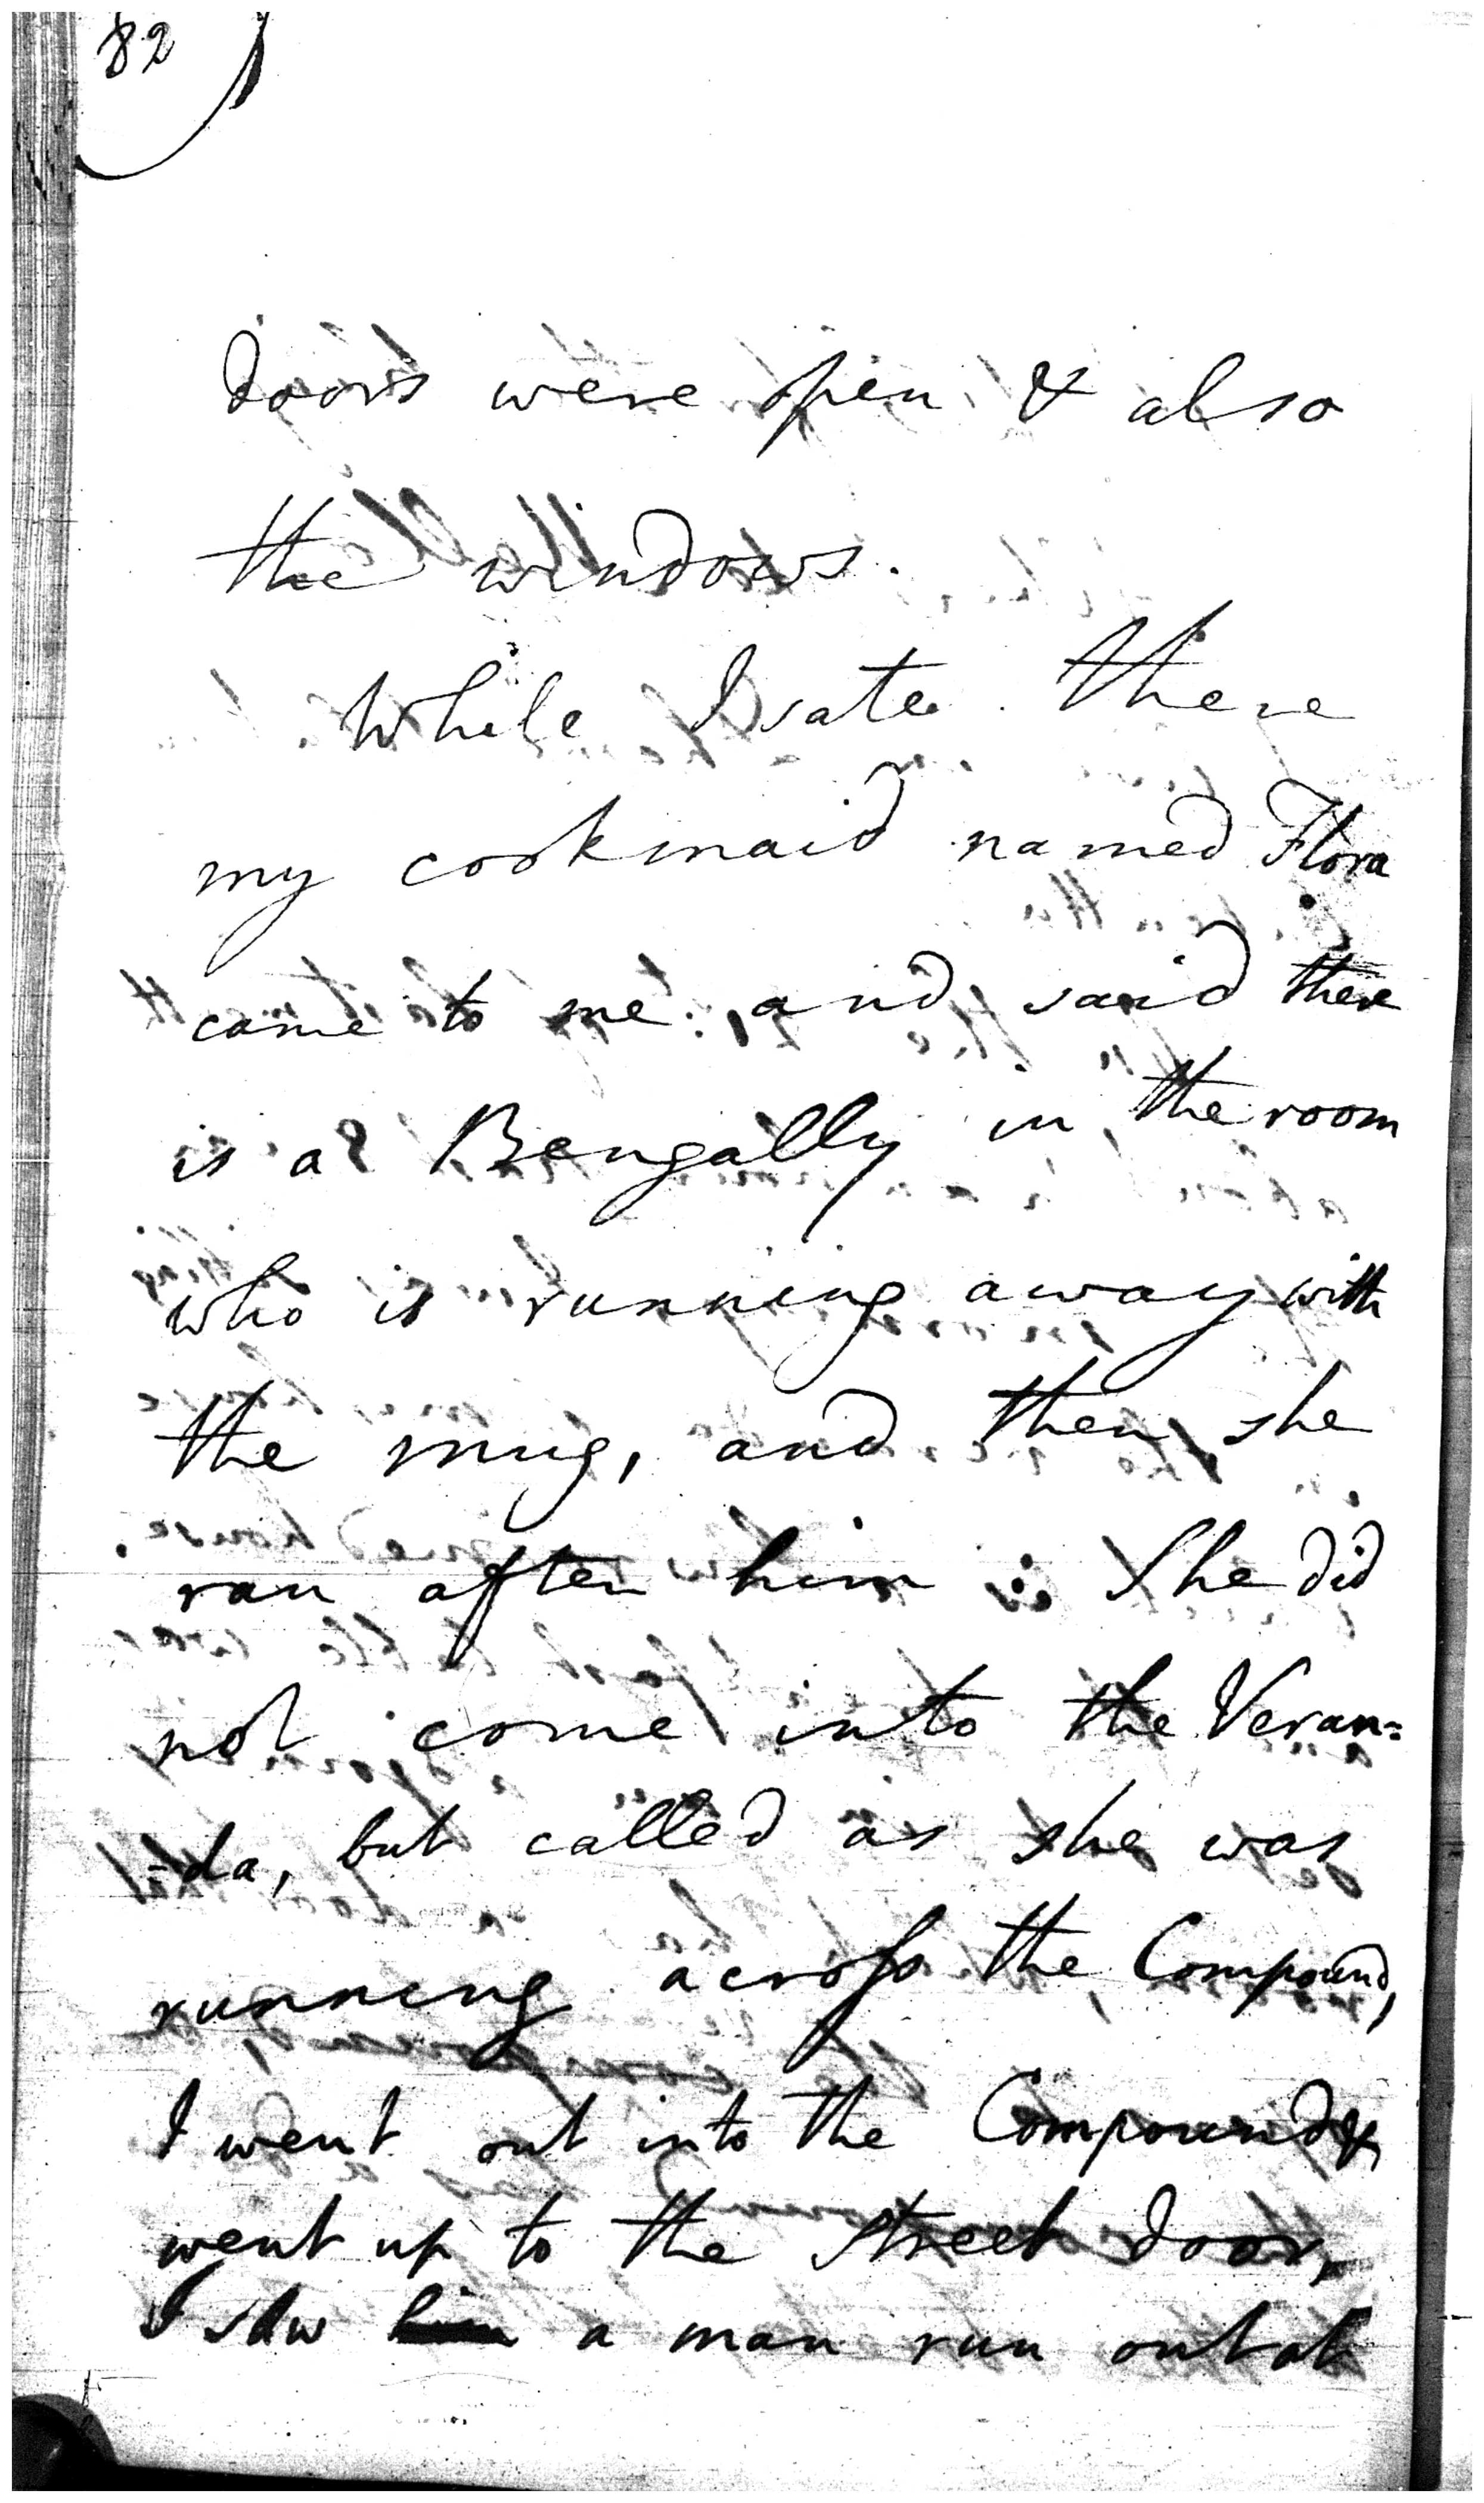 82
doors were open & also
the windows.
While I sate there
my cookmaid named Flora
came to me and said there
is a Bengally in the room
who is running away with
the mug, and then she
ran after him. She did
not come into the Veran=
=da, but called as she was
running across the Compound,
I went out into the Compound &
went up to the street door,
I saw him a man run out at